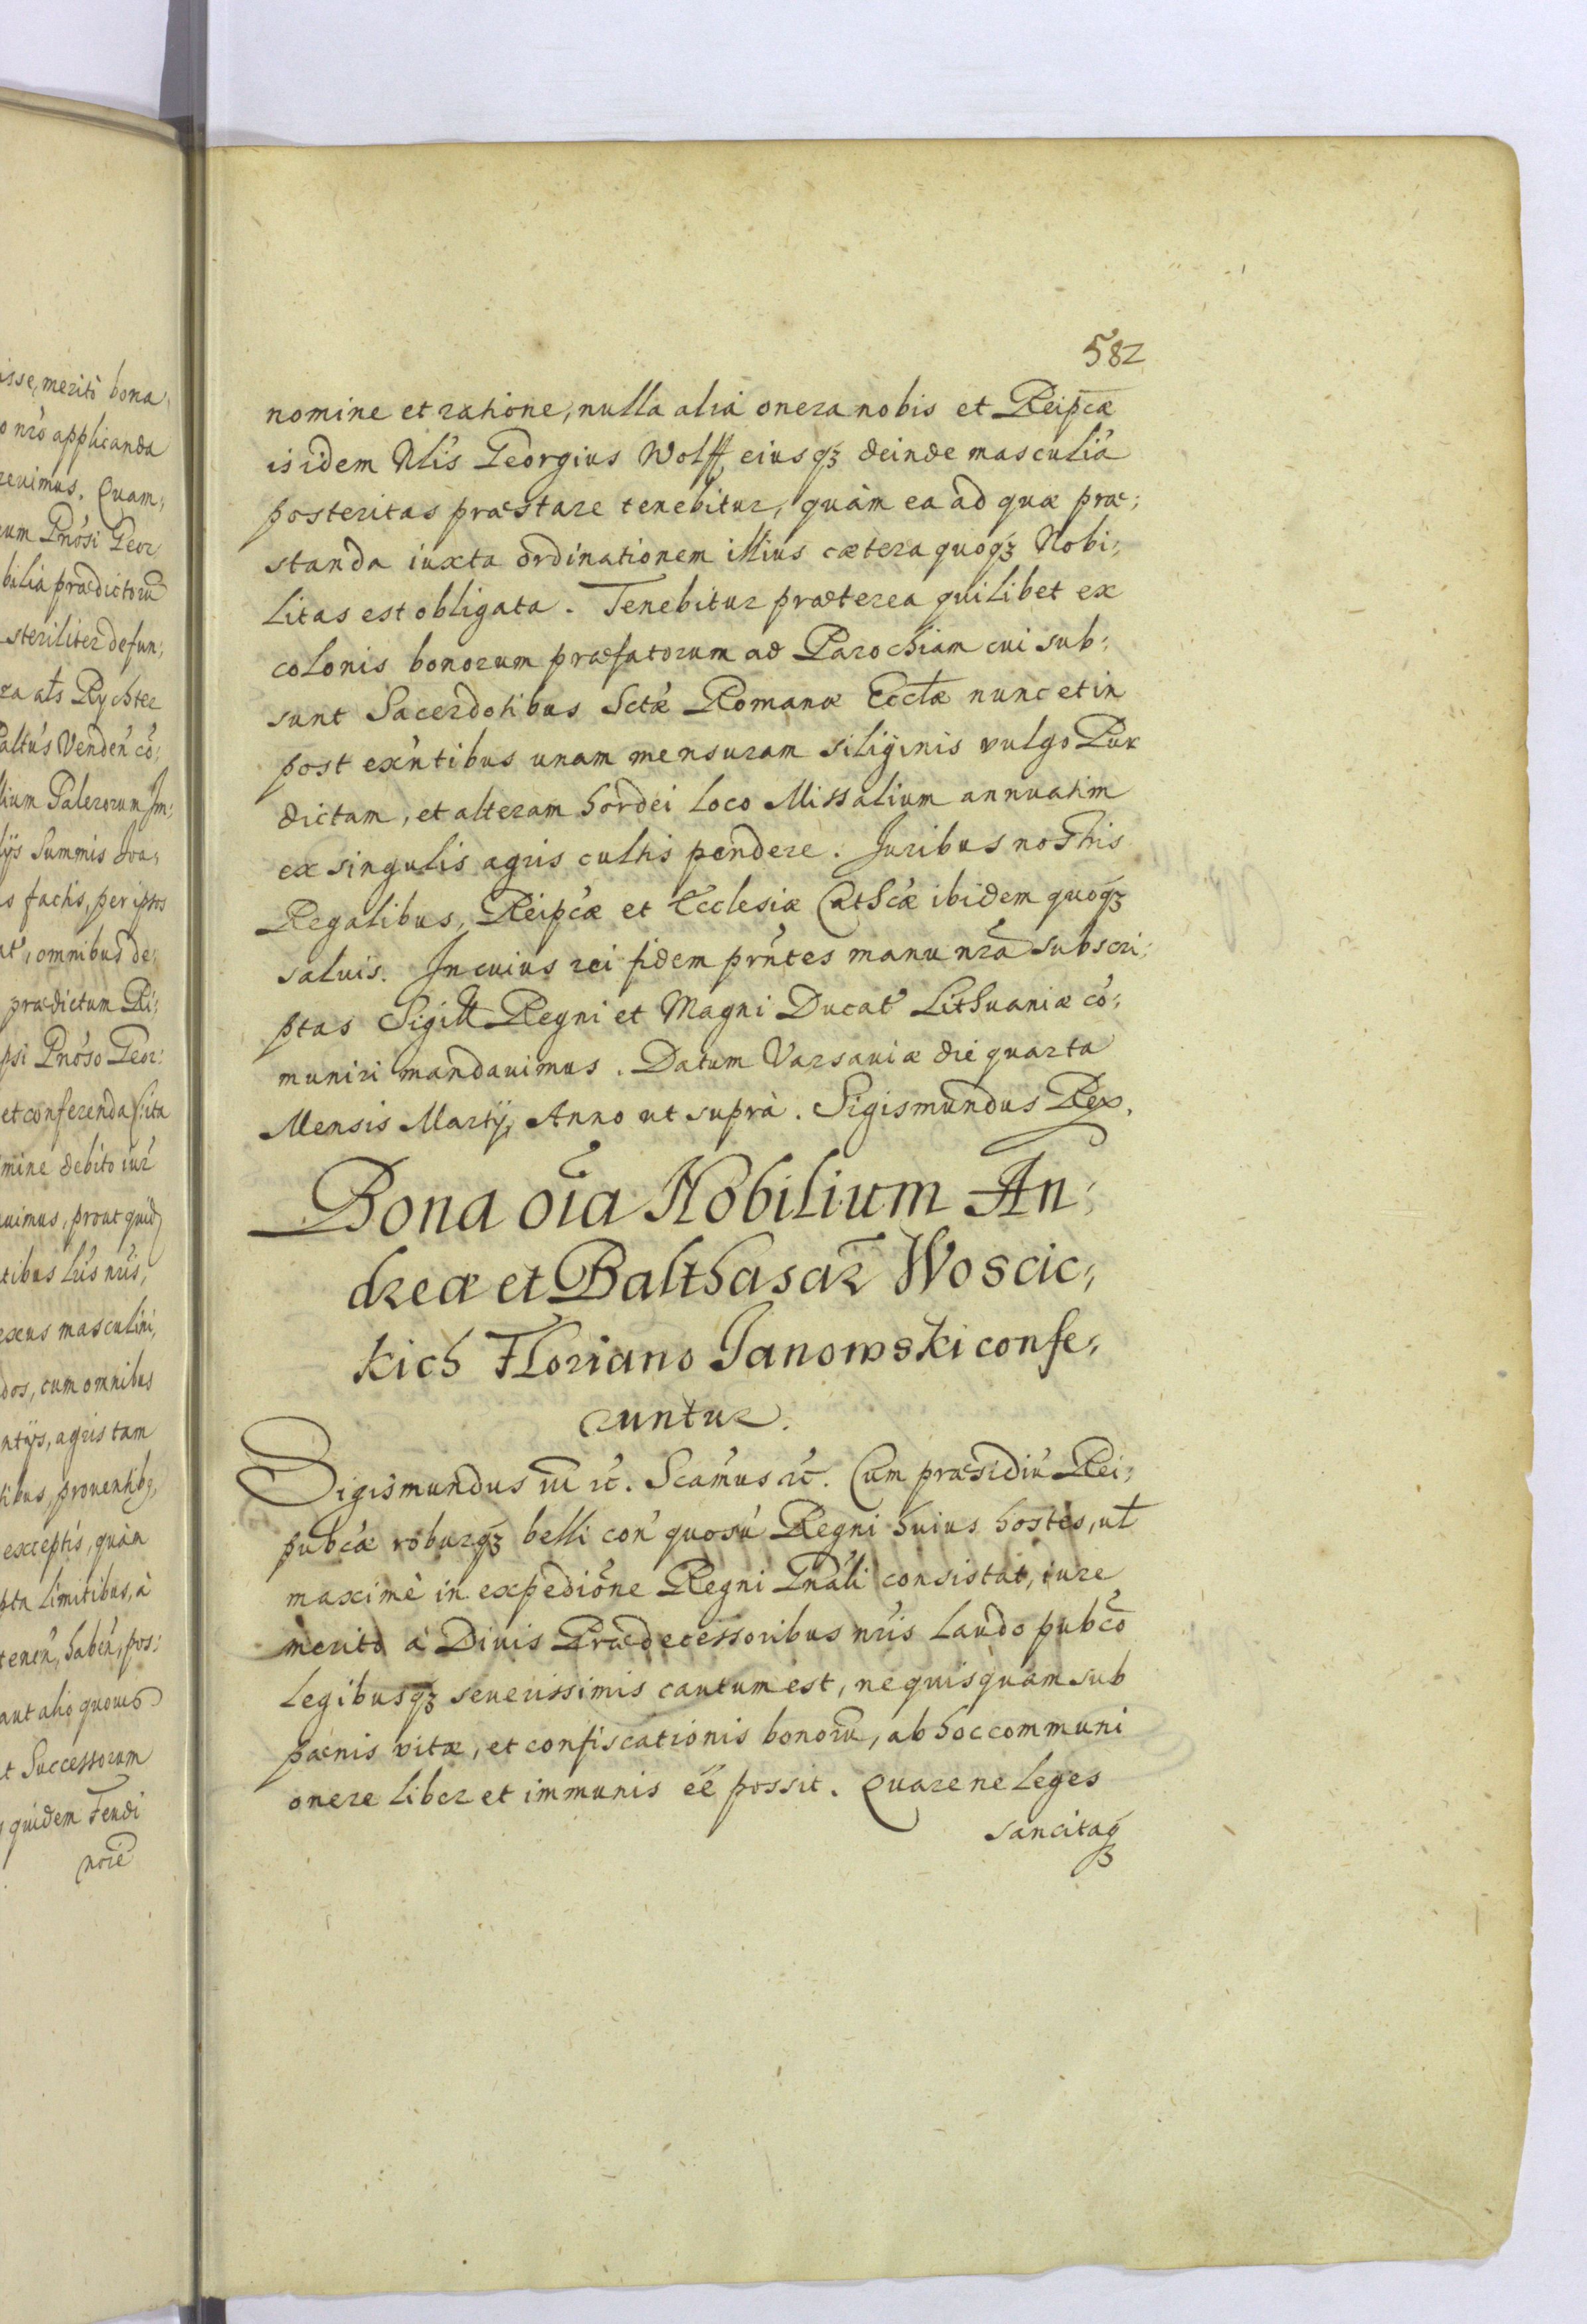 isse, meritò bona
o nr̃o applicanda
Quam;
um Gnõsi Geor
bilia prædictorũ
steriliter defun;
ra als Rychter
Venden cõ;
lium Galerorum Im;
lijs Summis
s factis, per ipsos
at, omnibus de;
prædictum Ri;
psi Gnõso Geor:
et conferenda sita
mine debito iur
uimus, prout quid
tibus Lr̃is nr̃is,
exus masculini,
dos, cum omnibus
ntijs, agris tam
tibus, prouentibq,
exceptis, quàm
pta limitibus, à
tenen, haben, pos:
aut alio quouis
t Successorum
quidem Feudi
noie
582
nomine et ratione, nulla alia onera nobis et Reipcæ
is idem Nlis Georgius Wolff, eiusqꝫ deinde masculia
posteritas præstare tenebitur, quàm ea ad quæ præ;
standa iuxta ordinationem illius cætera quoqꝫ Nobi;
litas est obligata. Tenebitur præterea quilibet ex
colonis bonorum præfatorum ad Parochiam cui sub;
sunt Sacerdotibus Sctæ Romanæ Eccłæ nunc et in
post exñtibus unam mensuram siliginis vulgo Pur
dictam, et alteram hordei loco Missalium annuatim
ex singulis agris cultis pendere. Juribus nostris
Regalibus, Reipcæ et Ecclesiæ Cathcæ ibidem quoqꝫ
saluis. In cuius rei fidem prñtes manu nrã subscri;
ptas Sigill Regni et Magni Ducat Lithuaniæ cõ;
muniri mandauimus. Datum Varsauiæ die quarta
Mensis Martij, Anno ut suprà. Sigismundus Rex.
Bona oĩa Nobilium An;
dreæ et Balthasar Woscic;
kich Floriano Janowski confe;
runtur.
Sigismundus III etc. Scamus etc. Cum præsidiũ Rei;
pubcæ roburqꝫ belli con quosũ Regni huius hostes, ut
maximè in expedione Regni Gnali consistat, iure
merito à Diuis Prædecessoribus nr̃is laudo pubco
legibusqꝫ seuerissimis cautum est, ne quisquam sub
pænis vitæ, et confiscationis bonorũ, ab hoc communi
onere liber et immunis eẽ possit. Quare ne leges
sancitaqꝫ